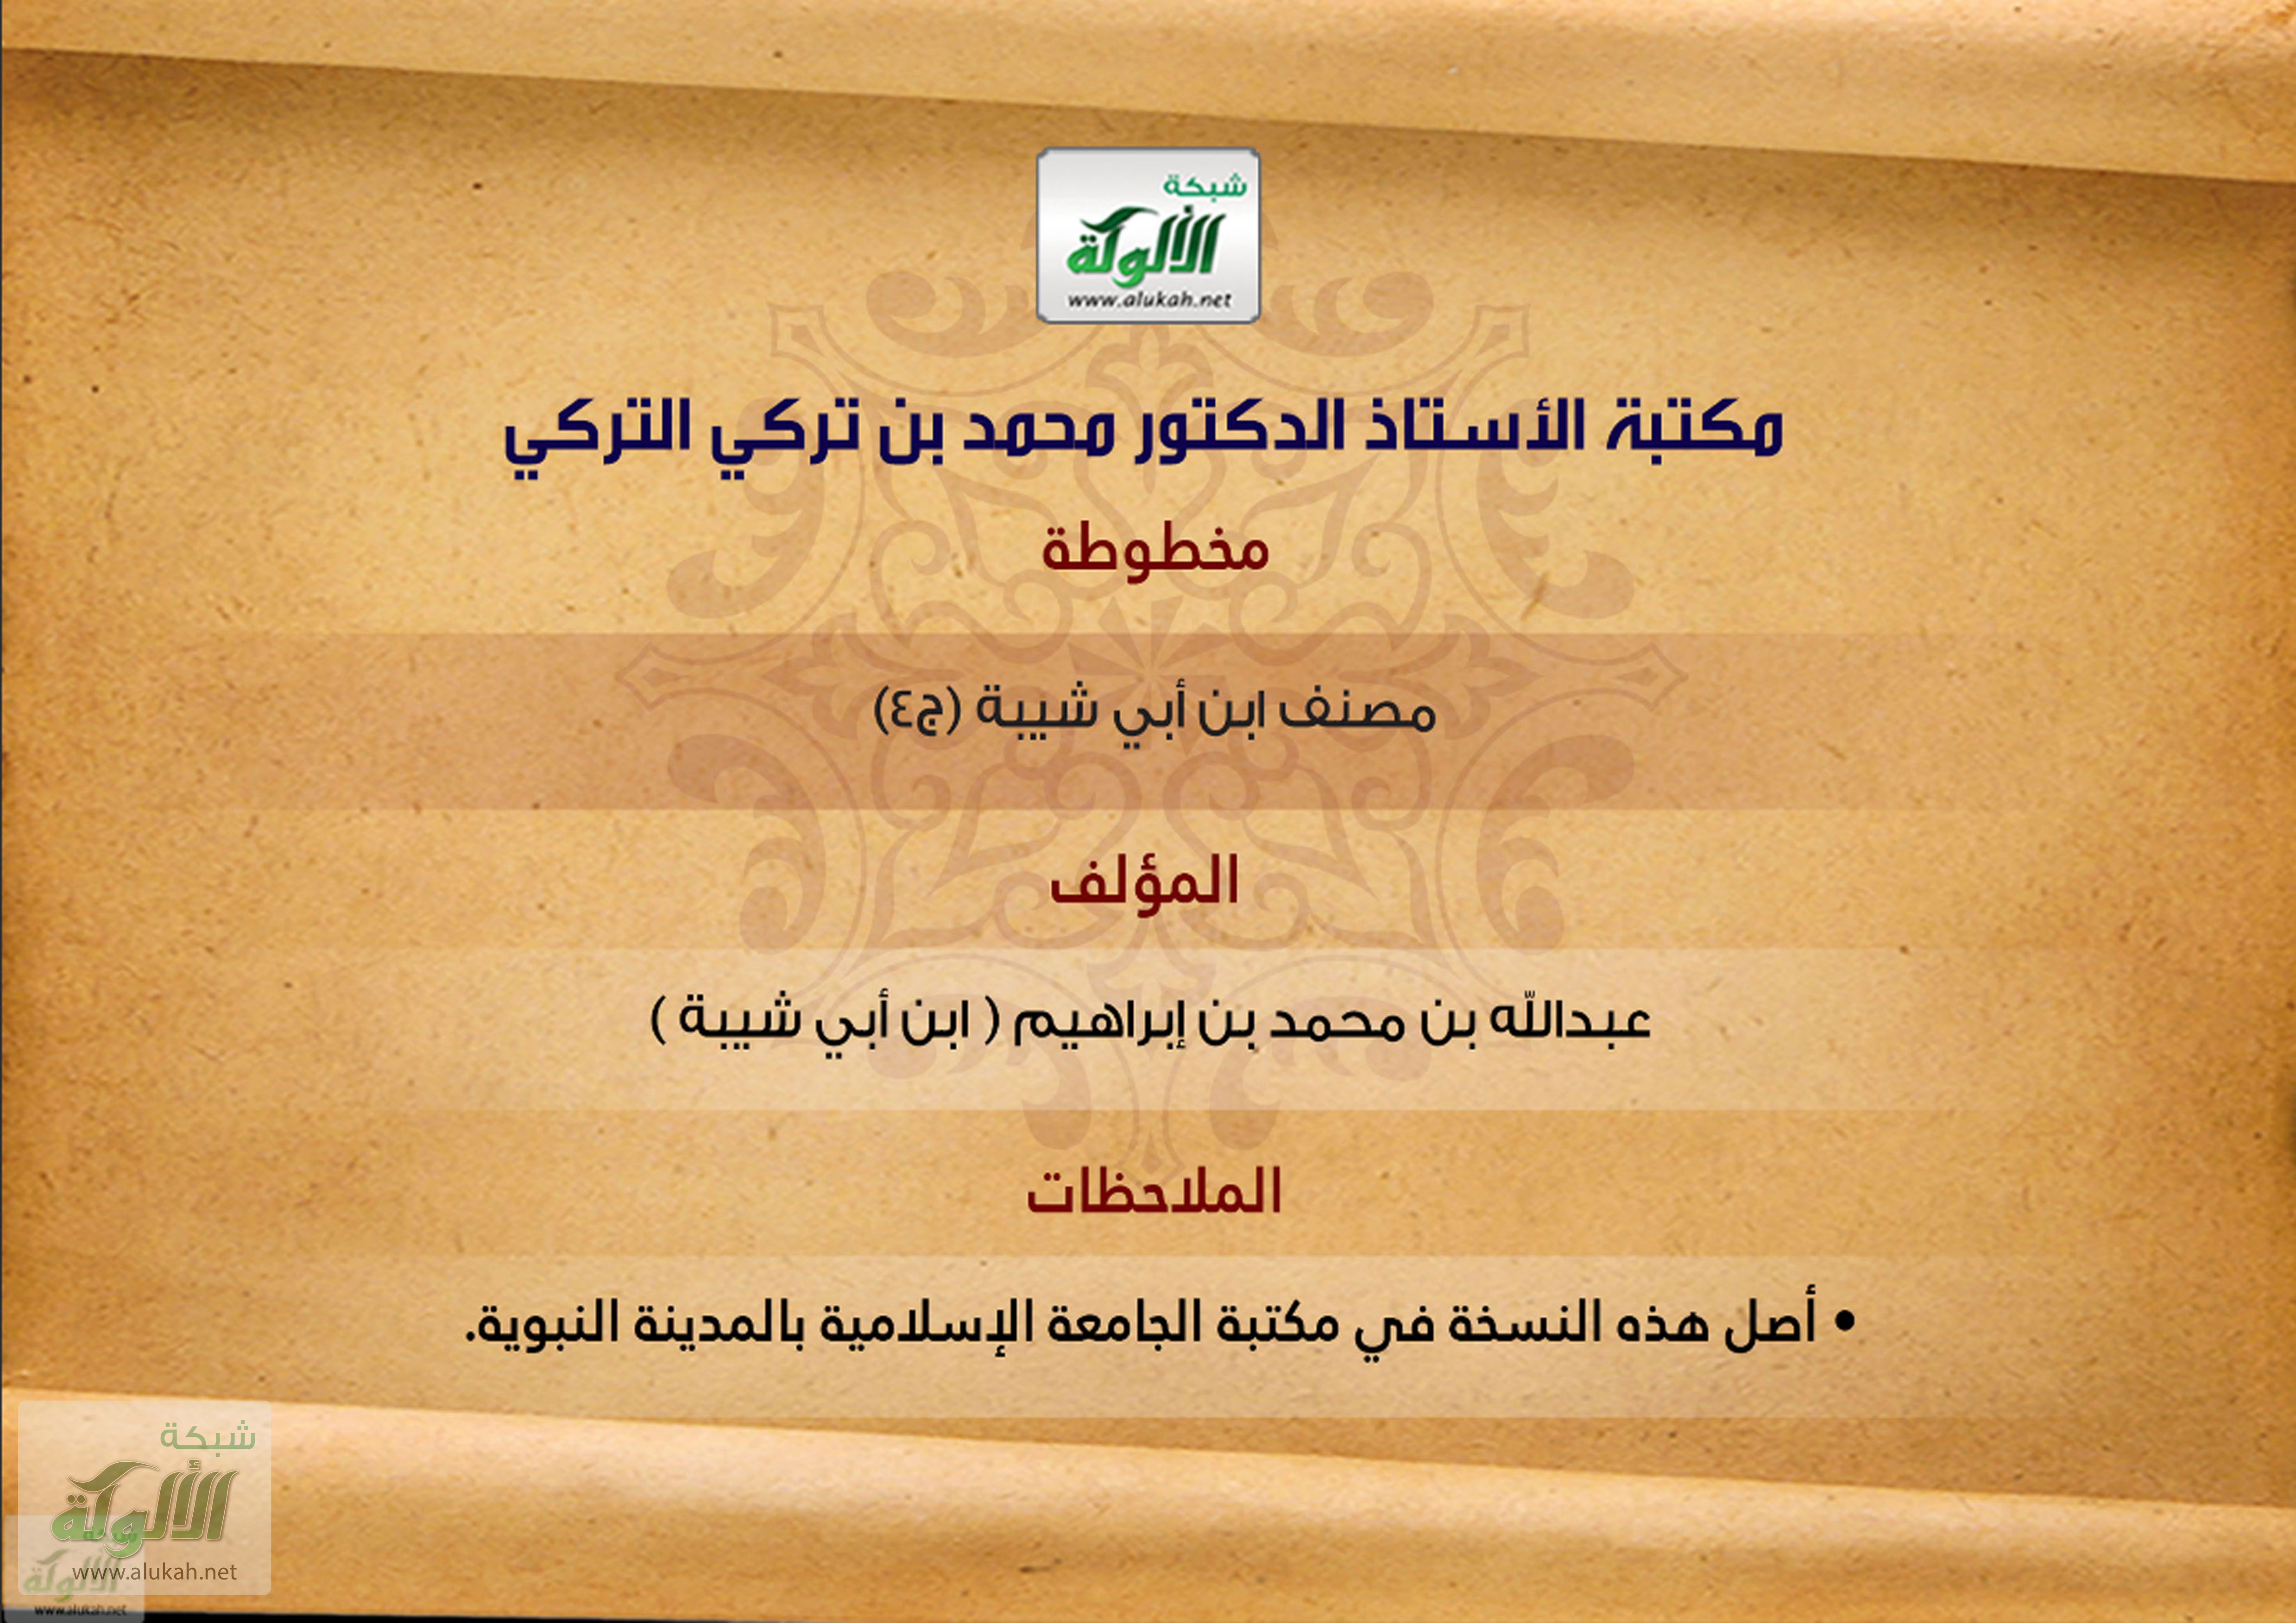 شبكة
الألوكة
www.alukah.net
مكتبة الأستاذ الدكتور محمد بن تركي التركي
مخطوطة
مصنف ابن أبي شيبة (ج٤)
المؤلف
عبدالله بن محمد بن إبراهيم ( ابن أبي شيبة )
الملاحظات
• أصل هذه النسخة في مكتبة الجامعة الإسلامية بالمدينة النبوية.
شبكة
الألوكة
www.alukah.net
شبكة
الألوكة
www.alukah.net